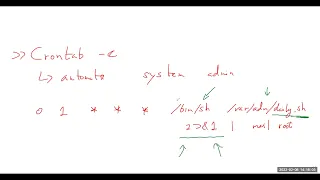 >> Crontab -e
↳ automate system admin
0 1 * * * /bin/sh /var/adm/daily.sh
2>&1 | mail root